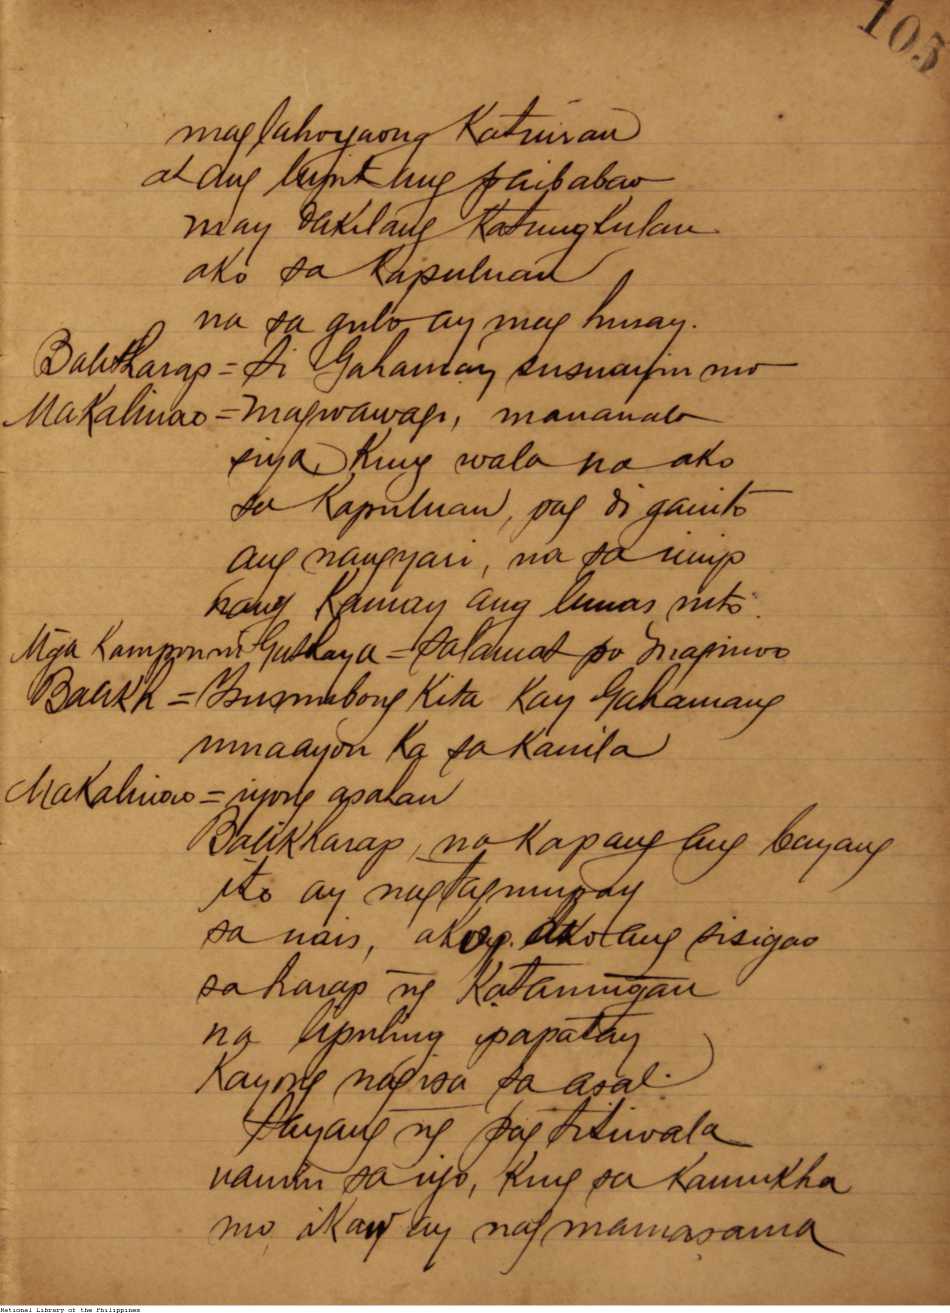 105
maglahoyaong Katuiran
at ang lupit ang paibabao
may dakilang Katungkulan
ako sa Kapuluan
na sa gulo ay mag husay.
Balikharap = Si Gahaman susuayin mo
Makalinao = magwawagi, mananalo
siya, Kung wala na ako
sa Kapuluan, pag di ganito
ang nangyari, na sa iniip
kang Kamay ang lunas nito.
Mga Kampon ni Guthaya = Salamat po Inaginoo
Balikh = Isusumbong Kita Kay Gahamang
umaayon Ka sa Kanila
Makalinao = iyong asahan
Balikharap, na Kapang ang bayang
ito ay nagtagumpay
sa nais, ako ang sisigao
sa harap ng Katamugan
na liputing ipapatay
Kayong nagisa sa asal.
Sayang ng pag titiwala
namin sa iyo, Kung sa Kamukha
mo, iKaw ay nag mamasama
National Library of the Philippines